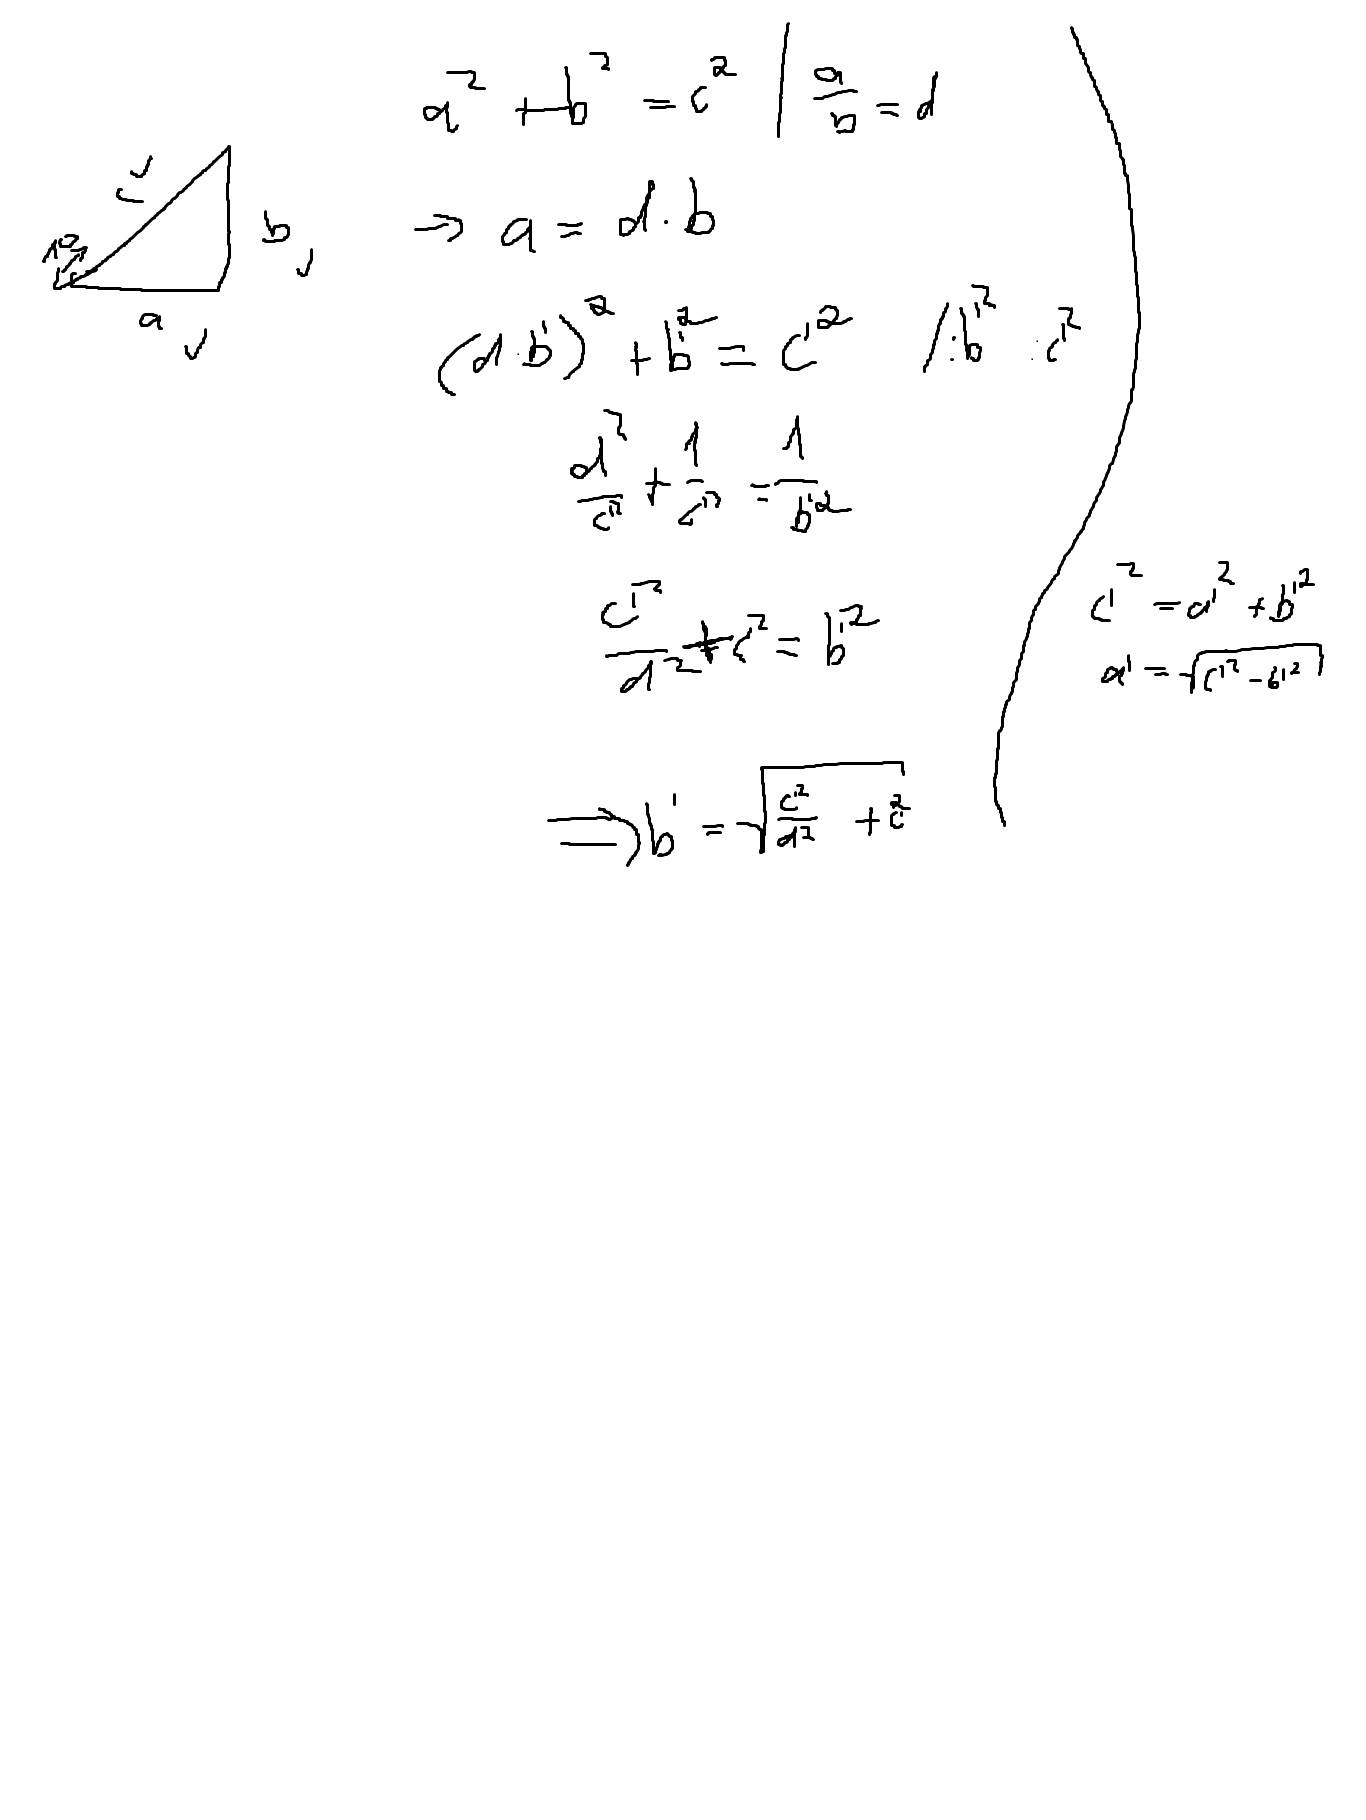 a² + b² = c² | a/b = d
c ✓
→ a = d · b
b ✓
10
a ✓
(d · b')² + b'² = c'² /: b'² : c'²
d²/c'² + 1/c'² = 1/b'²
c'²/d² + c'² = b'²
⇒ b' = √(c'²/d² + c²)
c'² = a'² + b'²
a' = √(c'² - b'²)